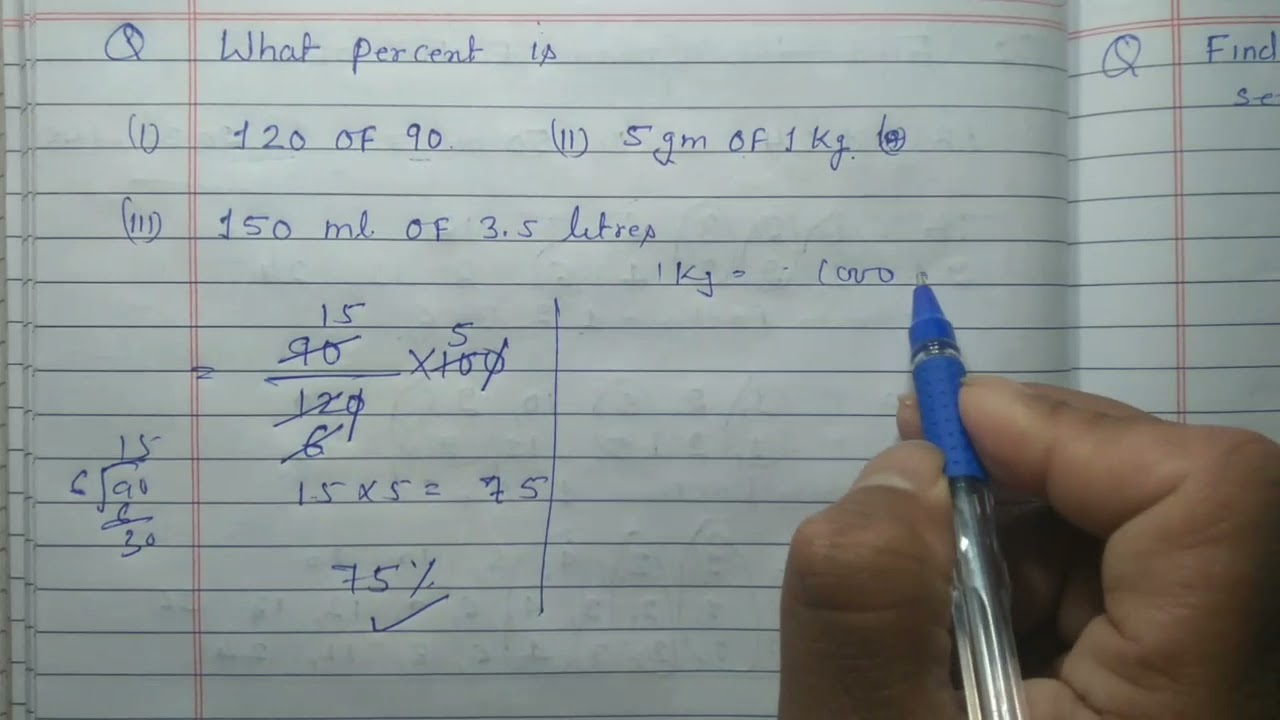 Q What percent is
(I) 120 OF 90. (II) 5 gm OF 1 Kg.
(III) 150 ml OF 3.5 litres
1 Kg = 1000
15
90 5
= ___ × 100
120
6
15
6 90
6
30
15 × 5 = 75
75%
Q Find
se